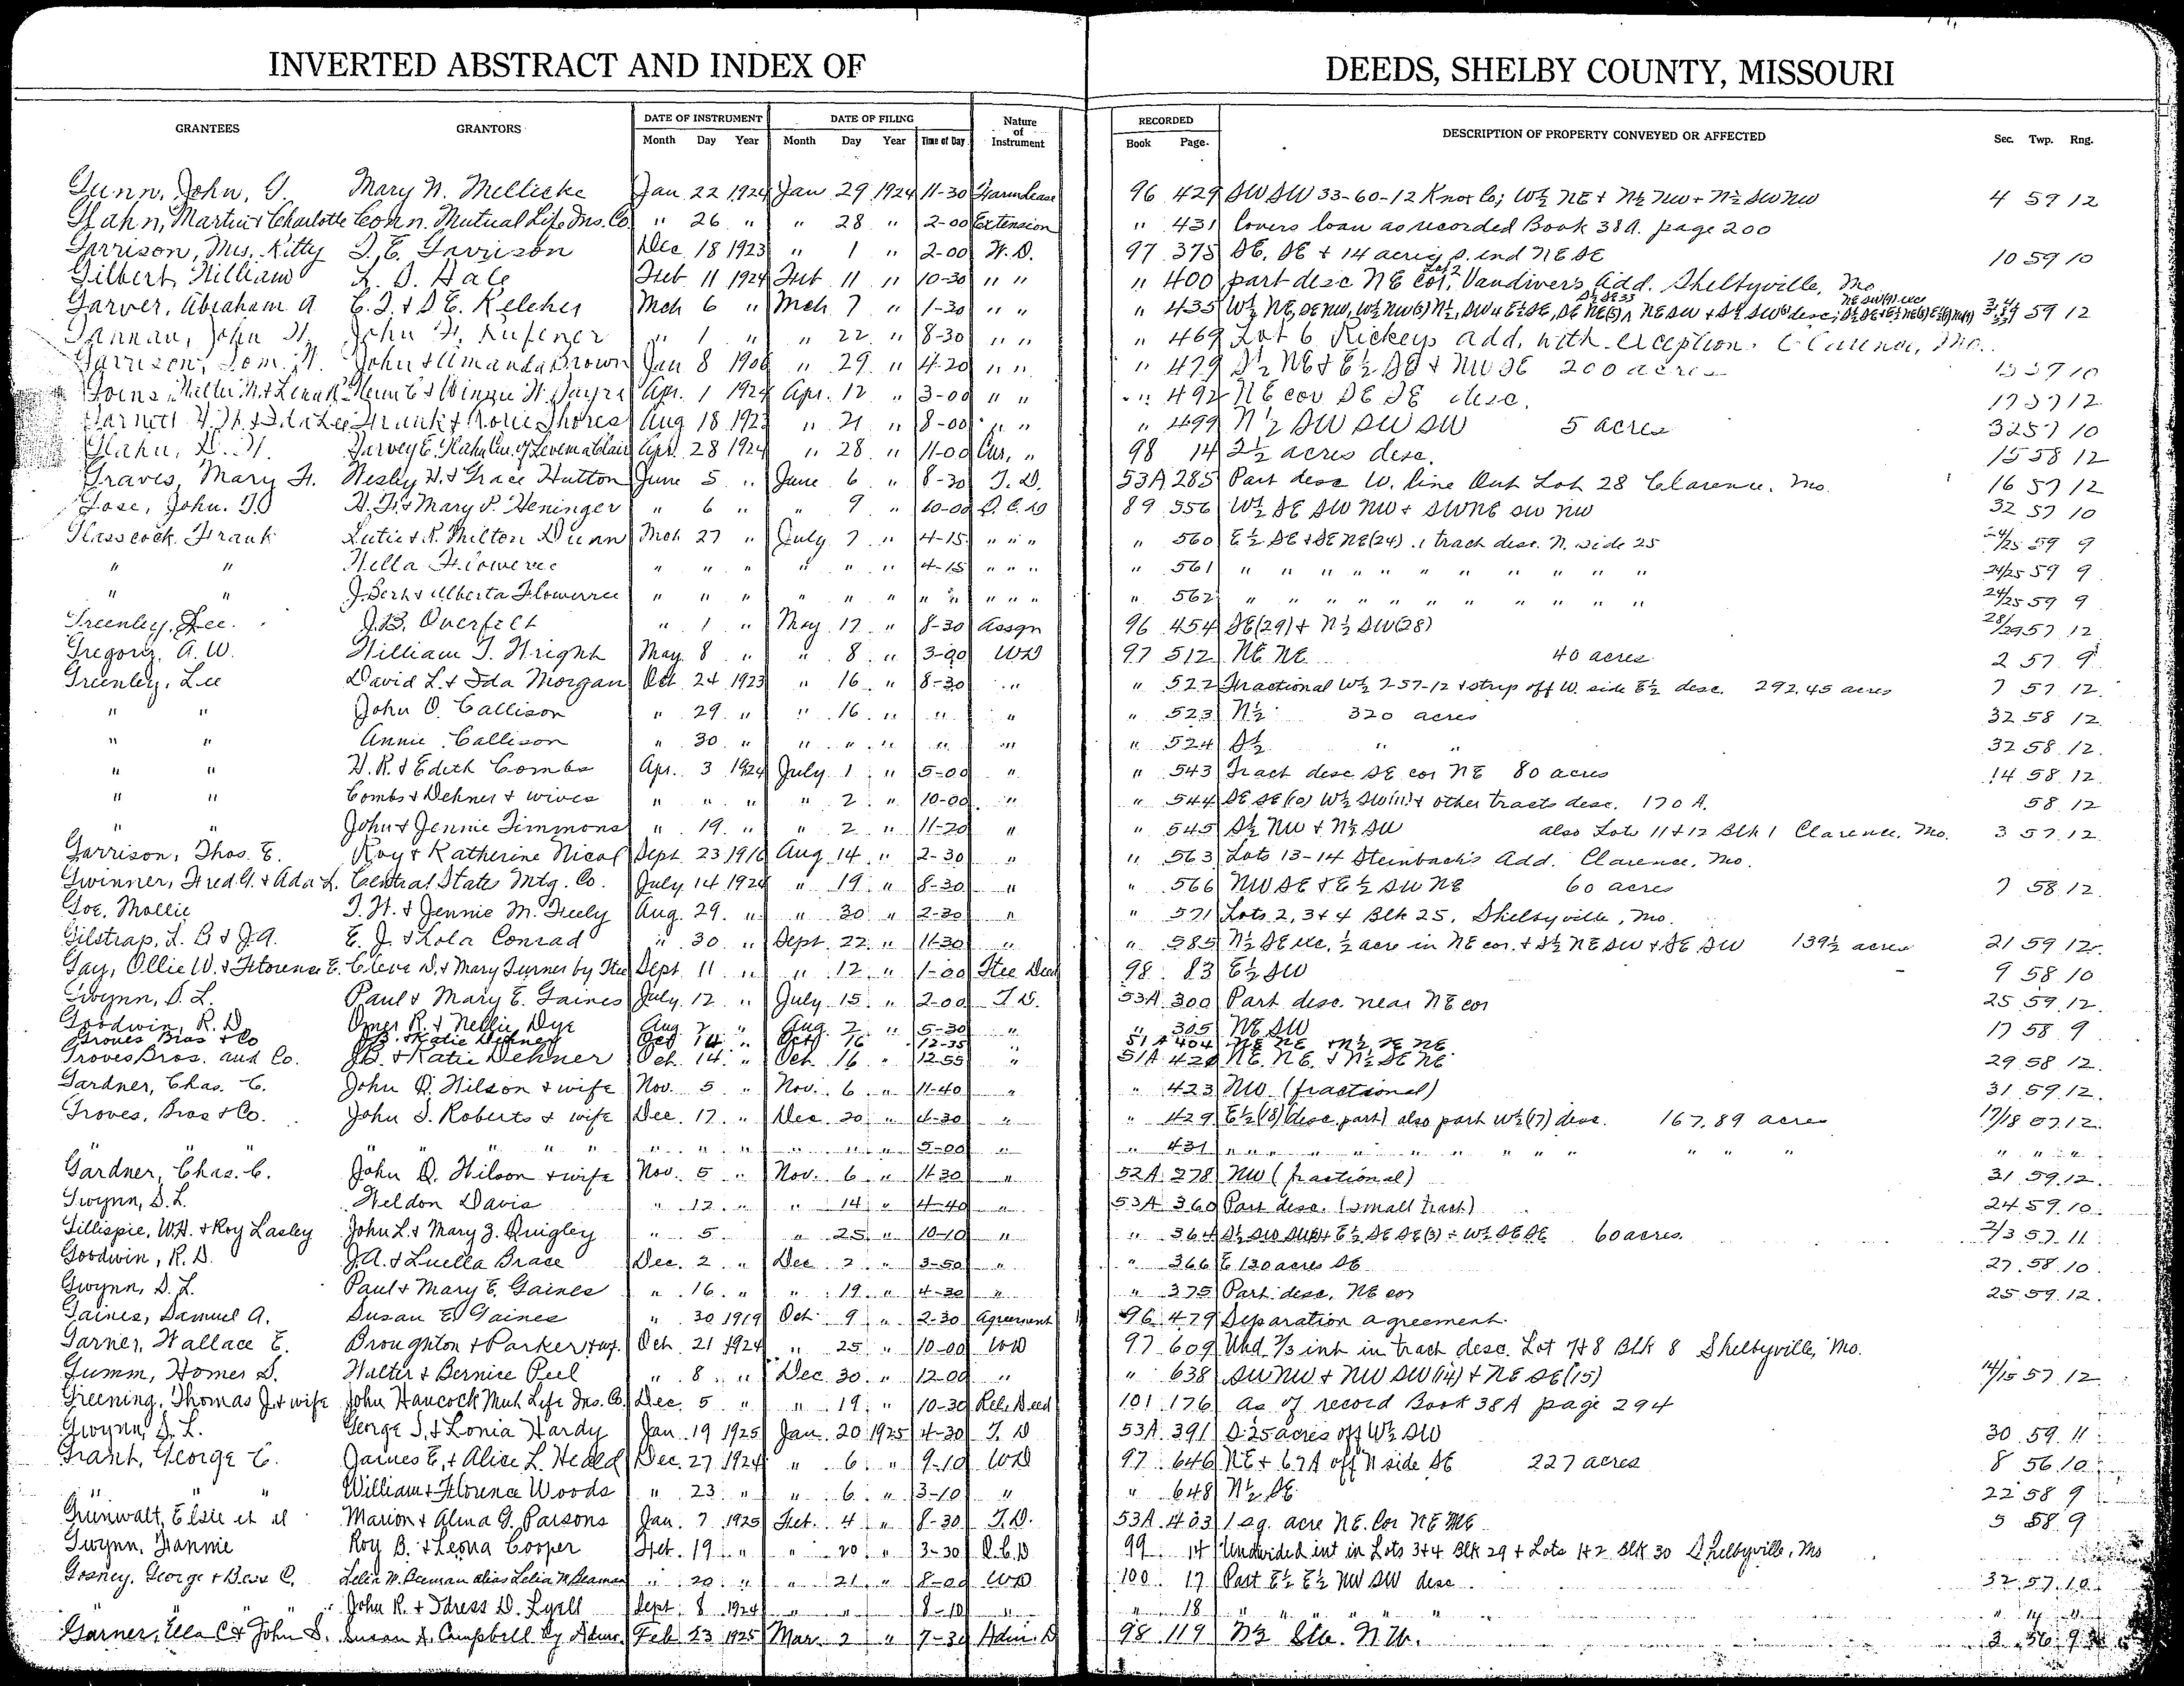 INVERTED ABSTRACT AND INDEX OF DEEDS, SHELBY COUNTY, MISSOURI
GRANTEES GRANTORS DATE OF INSTRUMENT DATE OF FILING Nature of Instrument RECORDED DESCRIPTION OF PROPERTY CONVEYED OR AFFECTED Sec. Twp. Rng.
Month Day Year Month Day Year Time of Day Book Page.
Gunn, John, G. Mary N. Mellicke Jan 22 1924 Jan 29 1924 11-30 Farm Lease 96 429 SW SW 33-60-12 Knox Co; W½ NE + N½ NW + N½ SW NW 4 59 12
Glahn, Martin + Charlotte Conn. Mutual Life Ins. Co. " 26 " " 28 " 2-00 Extension " 431 Covers loan as recorded Book 38A. page 200
Garrison, Mrs. Kitty T. E. Garrison Dec 18 1923 " 1 " 2-00 W.D. 97 375 SE, SE + 14 acres S. end NE SE 10 59 10
Gilbert, William L. D. Hale Feb 11 1924 Feb 11 " 10-30 " " " 400 part desc NE cor, Lot 2 Vandivers Add. Shelbyville, Mo
Garver, Abraham A. C. T. + S. E. Kelcher Mch 6 " Mch 7 " 1-30 " " " 435 W½ NE, SE NW, 59 12
Gannan, John W. John H. Rufener " 1 " " 22 " 8-30 " " " 469 Lot 6 Rickeys add, with exception. Clarence, Mo.
Garrison, Tom. W. John + Amanda Brown Jan 8 1906 " 29 " 4-20 " " " 479 S½ NE + E½ SE + NW SE 200 acres
Apr. 1 1924 Apr. 12 " 3-00 " " " 492 NE cor SE SE desc. 17 57 12
Frank + Rosie Shores Aug 18 1923 " 21 " 8-00 " " " 499 N½ SW SW SW 5 acres 32 57 10
Glahn, D. H. Harvey E. Glahn Cur. of Levema Clair Apr 28 1924 " 28 " 11-00 Cur. " 98 14 2½ acres desc. 15 58 12
Graves, Mary H. Wesley H. + Grace Hutton June 5 " June 6 " 8-30 T. D. 53A 285 Part desc W. line Out Lot 28 Clarence. Mo. 16 57 12
Gose, John. T.O H. T. + Mary P. Heninger " 6 " " 9 " 10-00 Q. C. D 89 556 W½ SE SW NW + SW NE SW NW 32 57 10
Glasscock Frank Lutie + R. Milton Dunn Mch 27 " July 7 " 4-15 " " " " 560 E½ SE + SE NE (24) + tract desc. N. side 25 24/25 59 9
" " Nella Flowerree " " " " " " 4-15 " " " " 561 " " " " " " " " " " " 24/25 59 9
" " J. Bert + Alberta Flowerree " " " " " " " " " " " " 562 " " " " " " " " " " " 24/25 59 9
Greenley, Lee. J.B. Overfelt " 1 " May 17 " 8-30 Assgn 96 454 SE (29) + N½ SW (28) 28/29 57 12
Gregory, A. W. William T. Wright May 8 " " 8 " 3-00 WD 97 512 NE NE 40 acres 2 57 9
Greenley, Lee David L. + Ida Morgan Oct 24 1923 " 16 " 8-30 " " 522 Fractional W½ 7-57-12 + strip off W. side E½ desc. 292.45 acres 7 57 12
" " John O. Callison " 29 " " 16 " " " " 523 N½ 320 acres 32 58 12
" " Annie Callison " 30 " " " " " " " 524 S½ " " 32 58 12
" " H. R. + Edith Combs Apr. 3 1924 July 1 " 5-00 " " 543 Tract desc SE cor NE 80 acres 14 58 12
" " Combs + Dehner + wives " " " " 2 " 10-00 " " 544 SE SE (10) W½ SW (11) + other tracts desc. 170 A. 58 12
" " John + Jennie Timmons " 19 " " 2 " 11-20 " " 545 S½ NW + N½ SW also Lots 11 + 12 Blk 1 Clarence, Mo. 3 57 12
Garrison, Thos. E. Roy + Katherine Nicol Sept 23 1916 Aug 14 " 2-30 " " 563 Lots 13-14 Steinbach's Add. Clarence, Mo.
Gwinner, Fred G. + Ada L. Central States Mtg. Co. July 14 1924 " 19 " 8-30 " " 566 NW SE + E½ SW NE 60 acres 7 58 12
Goe, Mollie T. H. + Jennie M. Feely Aug. 29 " " 30 " 2-30 " " 571 Lots 2, 3 + 4 Blk 25, Shelbyville, Mo.
Gilstrap, L. B + J.A. E. J. + Lola Conrad " 30 " Sept. 22 " 11-30 " " 585 N½ SE exc. ½ acre in NE cor. + S½ NE SW + SE SW 139½ acres 21 59 12
Gay, Ollie W. + Florence E. Cleve D. + Mary Turner by Tree Sept 11 " " 12 " 1-00 Tree Deed 98 83 E½ SW 9 58 10
Gwynn, D. L. Paul + Mary E. Gaines July 12 " July 15 " 2-00 T. D. 53A 300 Part desc. near NE cor 25 59 12
Goodwin, R. D. Omer R. + Nellie Dye Aug 2 " Aug. 2 " 5-30 " " 305 NE SW 17 58 9
Groves Bros + Co J.B. + Katie Dehner Oct 14 " Oct 16 " 12-35 51A 404 NE NE + N½ SE NE
Groves Bros. and Co. J.B. + Katie Dehner Oct. 14 " Oct. 16 " 12-55 " 51A 420 NE. NE. + N½ SE NE 29 58 12
Gardner, Chas. C. John Q. Wilson + wife Nov. 5 " Nov. 6 " 11-40 " " 423 NW (fractional) 31 59 12
Groves, Bros + Co. John S. Roberts + wife Dec. 17 " Dec. 20 " 4-30 " " 429 E½ (18) (desc part) also part W½ (17) desc. 167.89 acres 17/18 57 12
" " " " " " " " " " " " 5-00 " " 431 " " " " " " " " " " " " "
Gardner, Chas. C. John Q. Wilson + wife Nov. 5 " Nov. 6 " 11-30 " 52A 278 NW (fractional) 31 59 12
Gwynn, D. L. Weldon Davis " 12 " " 14 " 4-40 " 53A 360 Part desc. (small tract) 24 59 10
Gillispie, W.H. + Roy Lasley John L. + Mary Z. Quigley " 5 " 25 " 10-10 " " 364 60 acres. 2/3 57 11
Goodwin, R. D. J.A. + Luella Brace Dec. 2 " Dec 2 " 3-50 " " 366 E 130 acres SE 27 58 10
Gwynn, D. L. Paul + Mary E. Gaines " 16 " " 19 " 4-30 " " 375 Part desc. NE cor 25 59 12
Gaines, Samuel A. Susan E. Gaines " 30 1919 Oct 9 " 2-30 Agreement 96 479 Separation agreement.
Garner, Wallace E. Broughton + Parker + wf. Oct. 21 1924 " 25 " 10-00 WD 97 609 Und ⅓ int in tract desc. Lot 7+8 BLK 8 Shelbyville, Mo.
Gumm, Homer S. Walter + Bernice Peel " 8 " Dec 30 " 12-00 " " 638 SW NW + NW SW (14) + NE SE (15) 14/15 57 12
Greening, Thomas J + wife John Hancock Mut Life Ins. Co. Dec. 5 " " 19 " 10-30 Rel. Deed 101 176 As of record Book 38A page 294
Gwynn, D. L. George S. + Lonia Hardy Jan 19 1925 Jan 20 1925 4-30 T. D 53A 391 S. 25 acres off W½ SW 30 59 11
Grant, George C. James E. + Alice L. Heald Dec. 27 1924 " 6 " 9-10 WD 97 646 NE + 67A off N side SE 227 acres 8 56 10
" " William + Florence Woods " 23 " " 6 " 3-10 " " 648 N½ SE 22 58 9
Grunwalt, Elsie et al Marion + Alma G. Parsons Jan. 7 1925 Feb. 4 " 8-30 T.D. 53A 403 1 sq. acre NE. Cor NE NE 5 58 9
Gwynn, Nannie Roy B. + Leona Cooper Feb. 19 " " 20 " 3-30 Q.C.D 99 14 Undivided int in Lots 3+4 Blk 29 + Lots 1+2 Blk 30 Shelbyville, Mo
Gosney, George + Bess C. Lelia M. Beeman alias Lelia M Beaman " 20 " " 21 " 8-00 WD 100 17 Part E½ E½ NW SW desc. 32 57 10
" " John R. + Idress D. Lyell Sept. 8 1924 " " 8-10 " " 18 " " " " " " "
Garner, Ella C + John S. Susan A. Campbell by Admr. Feb 23 1925 Mar. 2 " 7-30 Adm. D 98 119 3 56 9